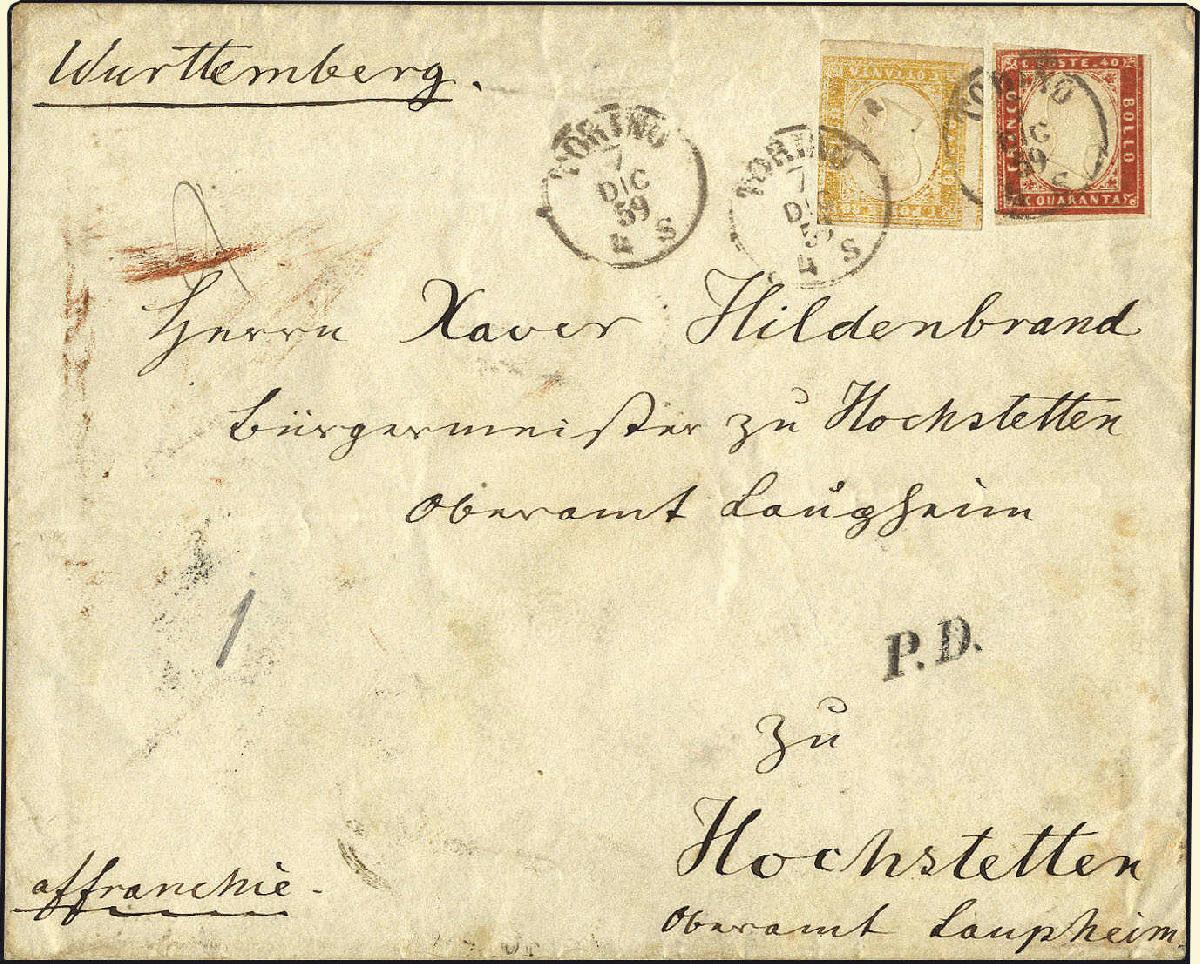 Württemberg.
TORINO
7
DIC
59
4 S
TORINO
7
DIC
59
4 S
OTTANTA
C. POSTE. 40
FRANCO
BOLLO
C. QUARANTA
TORINO
DIC
59
S
Herrn Xaver Hildenbrand
Bürgermeister zu Hochstetten
Oberamt Laupheim
1
P.D.
zu
Hochstetten
Oberamt Laupheim.
affranchie.